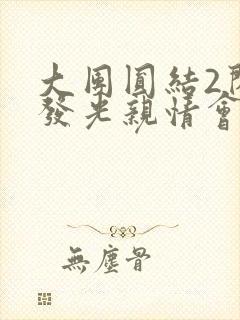 大團圓結2
發光親情會
無塵骨